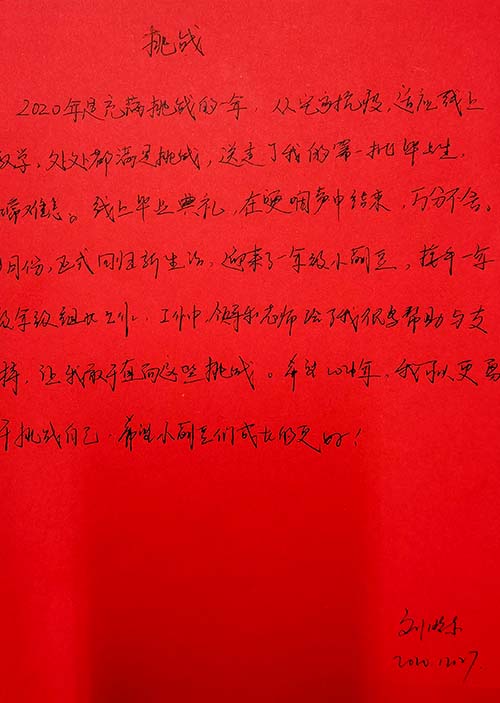 挑战
2020年是充满挑战的一年，从宅家抗疫，适应线上
教学，处处都满是挑战，送走了我的第一批毕业生，
常难忘。线上毕业典礼，在哽咽声中结束，万分不舍。
月份，正式回归新生活，迎来了一年级小豌豆，接手一年
级年级组长工作，工作中，领导和老师给了我很多帮助与支
持，让我敢于直面这些挑战。希望2021年，我可以更勇
于挑战自己，希望小豌豆们成长的更好！
刘
2020.12.27